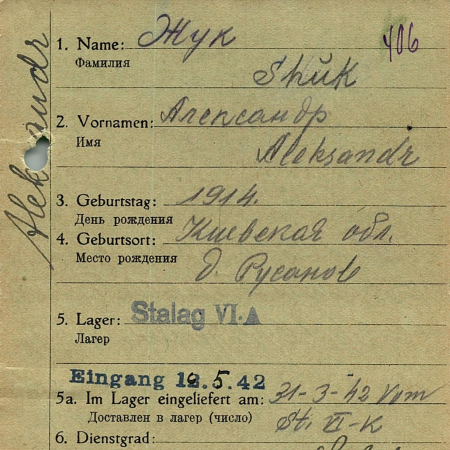 Aleksandr
1. Name: Жук
Фамилия
406
Shŭk
2. Vornamen: Александр
Имя
Aleksandr
3. Geburtstag: 1914.
День рождения
4. Geburtsort: Киевская обл.
Место рождения
д. Русанов
5. Lager: Stalag VI-A
Лагер
Eingang 12.5.42
5a. Im Lager eingeliefert am: 31-3-42 vom
Доставлен в лагер (число)
St. VI-K
6. Dienstgrad: